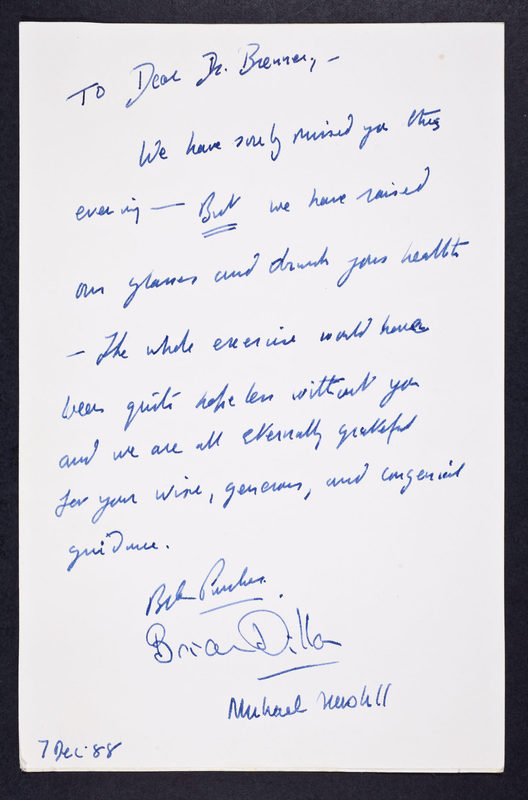 To Dear Dr. Brenner, –
We have sorely missed you this
evening — But we have raised
our glasses and drunk your health
– The whole exercise would have
been quite hopeless without you
and we are all eternally grateful
for your wise, generous, and congenial
guidance.
Brian Dillon
Michael
7 Dec. 88